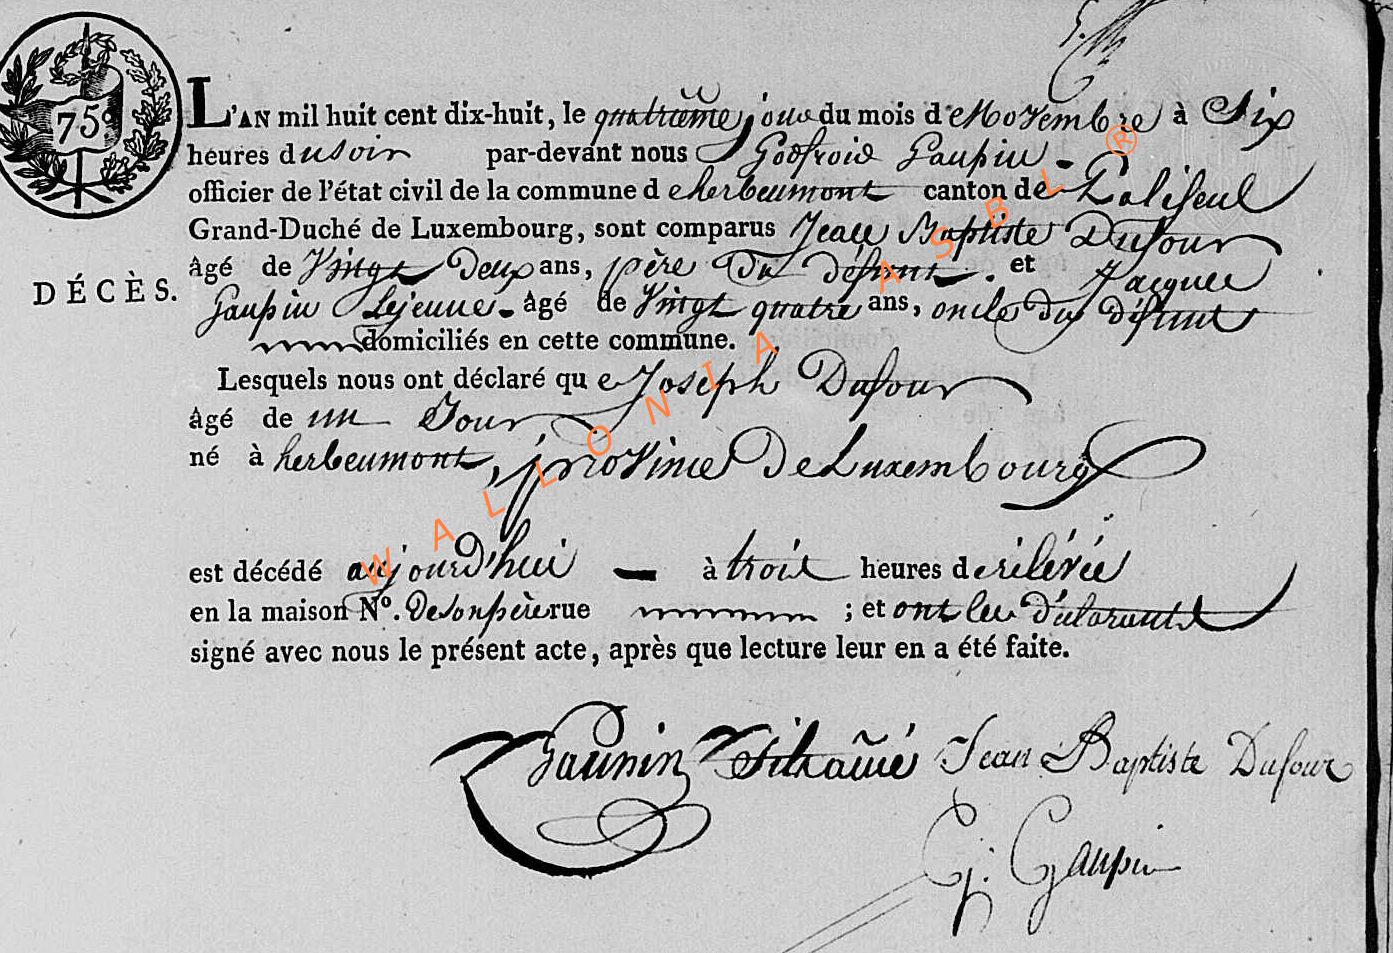 75c
L'AN mil huit cent dix-huit, le quatrieme jour du mois de Novembre à Six
heures du soir par-devant nous Godfroid Gaupin -
officier de l'état civil de la commune d e herbeumont canton de Paliseul
Grand-Duché de Luxembourg, sont comparus Jean Baptiste Dufour
âgé de Vingt Deux ans, père Du défunt. et Jacques
DÉCÈS.
Gaupin Lejeune - âgé de Vingt quatre ans, oncle Du défunt
domiciliés en cette commune.
Lesquels nous ont déclaré qu e Joseph Dufour
âgé de un Jour
né à herbeumont, province De Luxembourg
est décédé aujourd'hui — à trois heures de rélévée
en la maison N°. De son père rue ; et ont les déclarants
signé avec nous le présent acte, après que lecture leur en a été faite.
Gaupin Jean Baptiste Dufour
G: Gaupin
WALLONIA ASBL ®